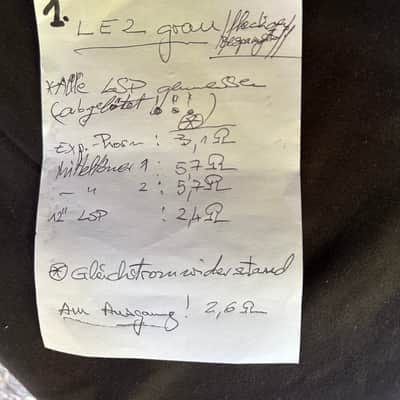 1.
LE2 grau / fleckig / besprayt //
* Alle LSP gemessen
(abgelötet !!!)
Exp.-Horn : 3,1 Ω
Mitteltöner 1 : 5,7 Ω
— " 2 : 5,7 Ω
12" LSP : 2,4 Ω
⊛ Gleichstromwiderstand
Am Ausgang ! 2,6 Ω